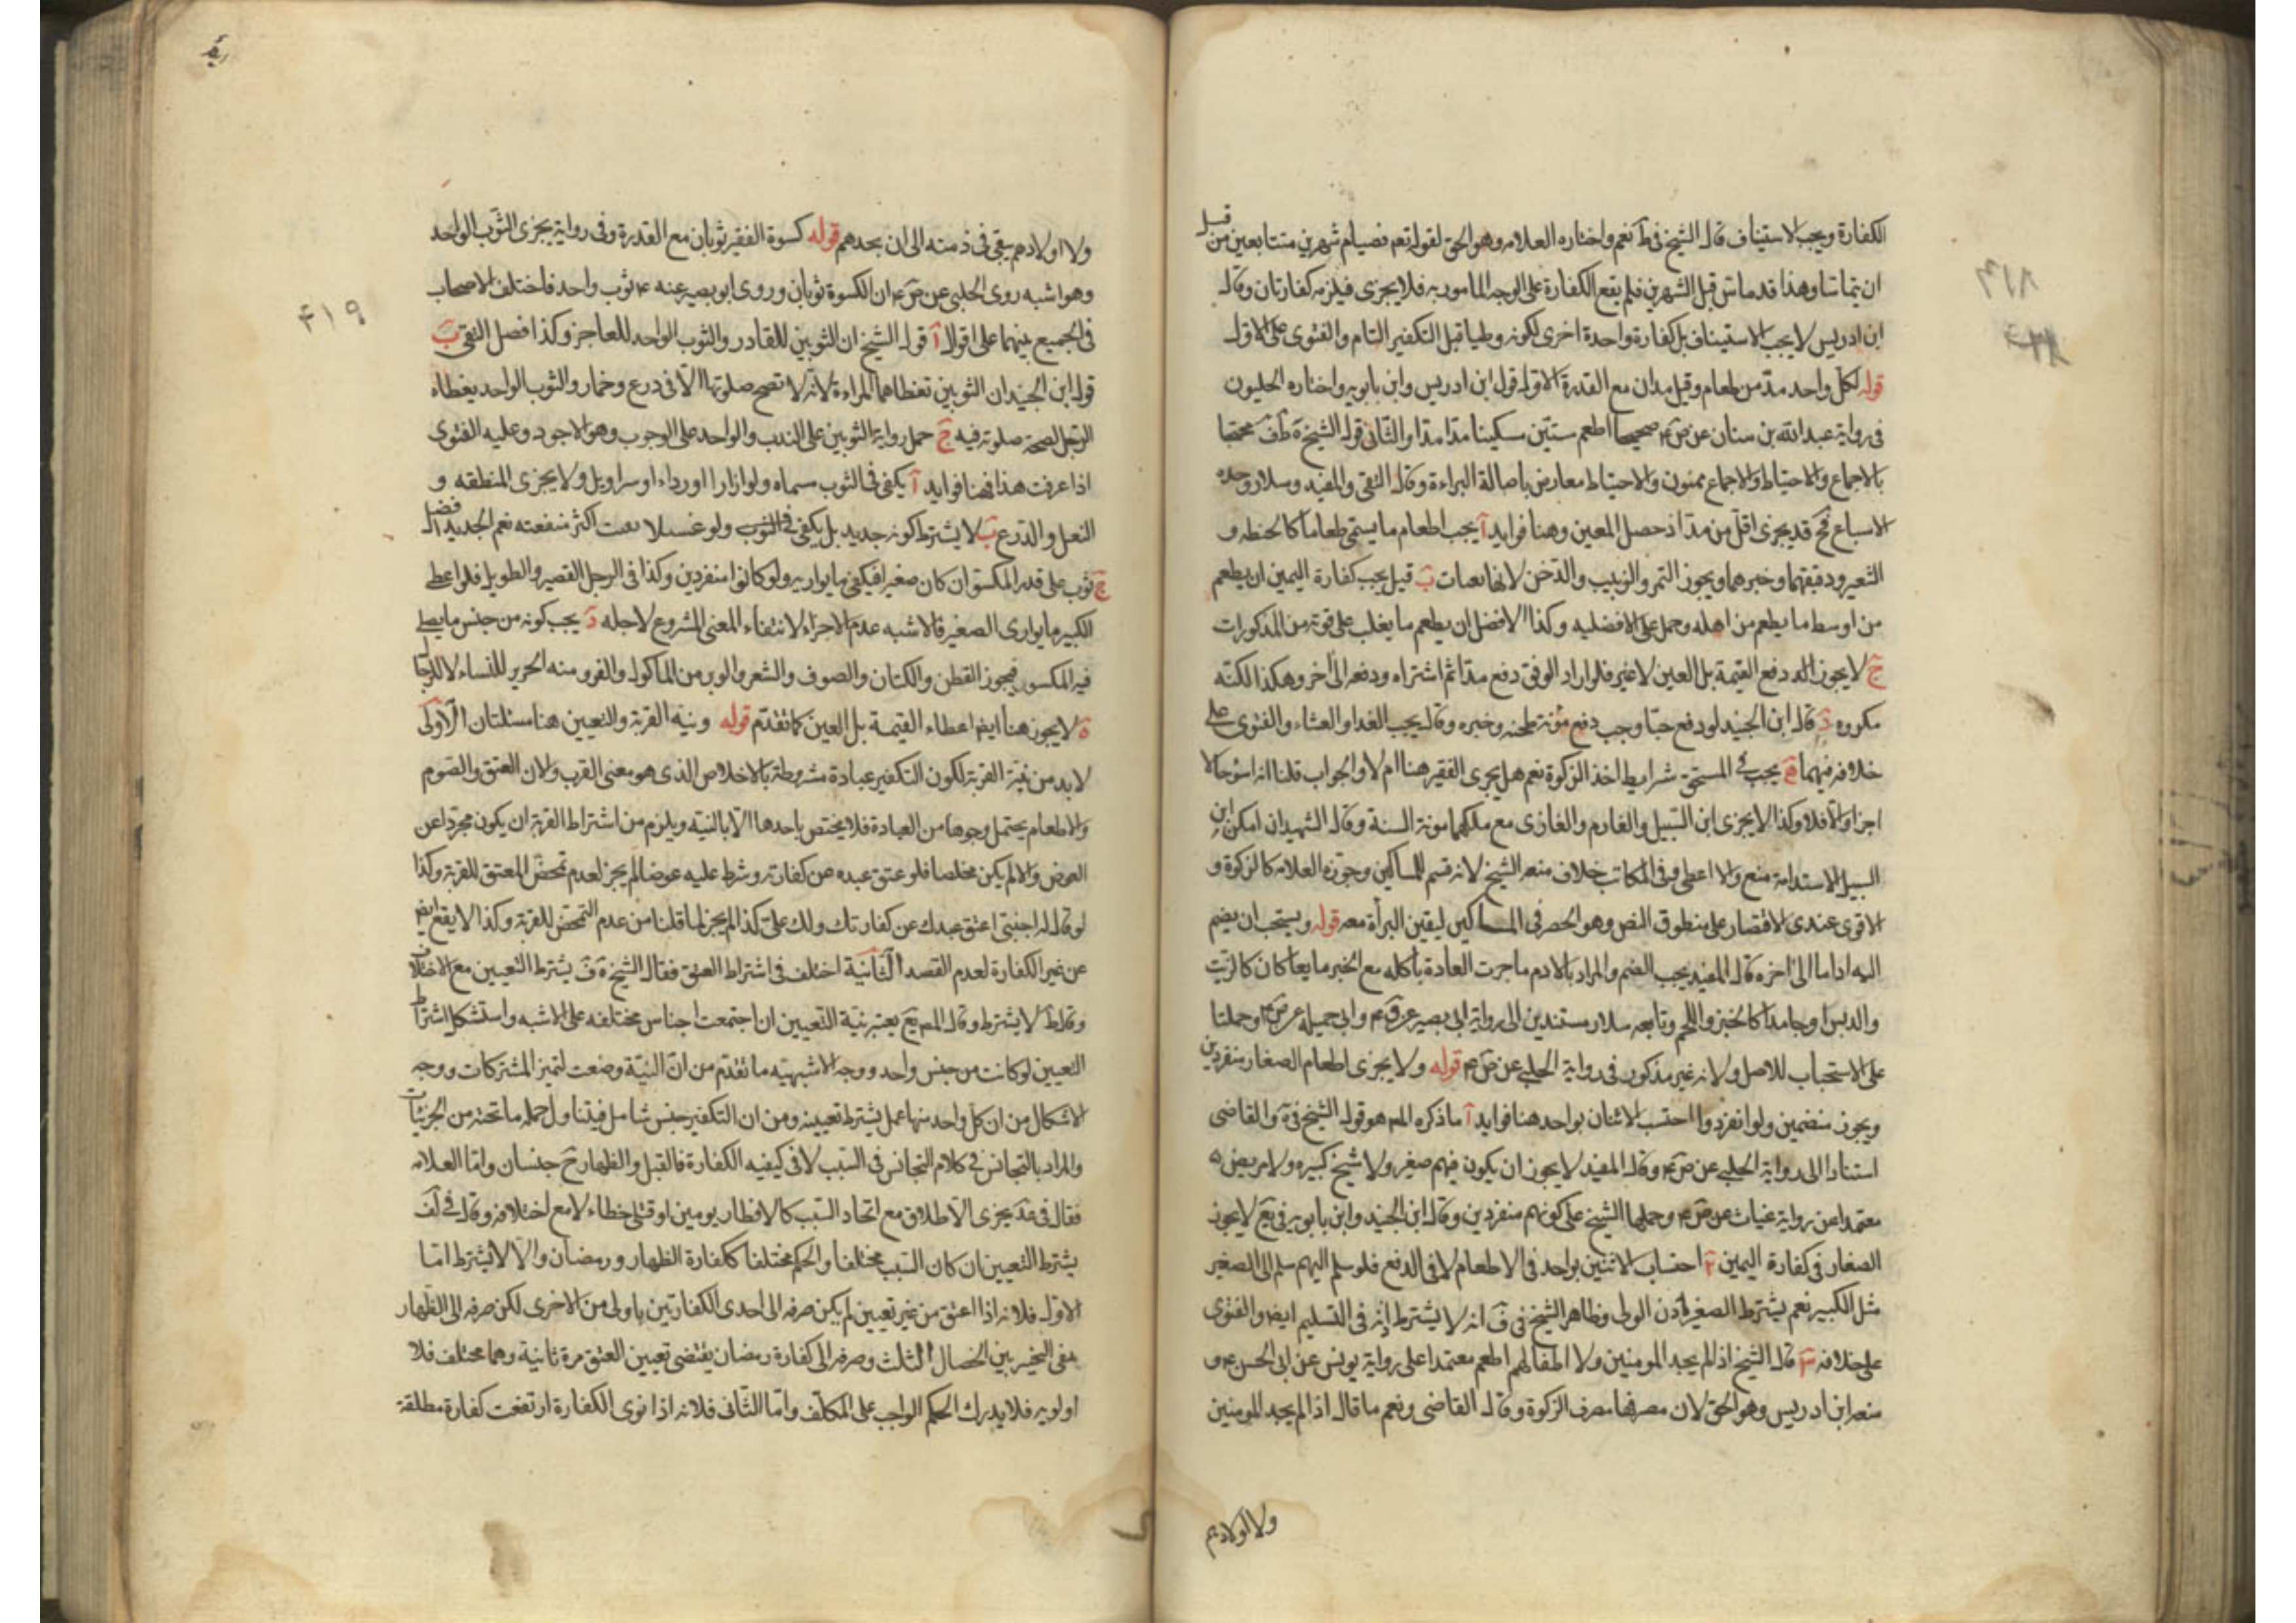 ٤١٨
الكفارة ويجب الاستيناف قال الشيخ فى ط نعم واختاره العلامه وهو الحق لقوله تعم فصيام شهرين متتابعين من قبل
ان يتماسا وهذا قد ماس قبل الشهرين فلم يقع الكفارة على الوجه المامور به فلا يجزى فيلزمه كفارتان وقال
ابن ادريس لا يجب الاستيناف بل كفارة واحدة اخرى لكونه وطيا قبل التكفير التام والفتوى على الاول
قوله لكل واحد مد من طعام وقيل مدان مع القدرة الاول قول ابن ادريس وابن بابويه واختاره الحليون
فى رواية عبد الله بن سنان عن ص ع صحيحا اطعم ستين مسكينا مدا مدا والثانى قول الشيخ ة ط ف محتجا
بالاجماع والاحتياط والاجماع ممنوع والاحتياط معارض باصالة البراءة وقال التقى والمفيد وسلار وحده
الاسباع فح قد يجزى اقل من مد اذ حصل المعين وهنا فوايد آ يجب اطعام ما يسمى طعاما كالحنطه و
الشعير ودقيقهما وخبزهما ويجوز التمر والزبيب والدخن لانها بعات ب قيل يجب كفارة اليمين ان يطعم
من اوسط ما يطعم من اهله وحمل على الافضليه وكذا الافضل ان يطعم ما يغلب على قوته من المذكورات
ج لا يجوز الد دفع القيمة بل العين لا غير فلو اراد الوفق دفع مدا ثم اشتراه ودفعه الى اخر وهكذا لكنه
مكروه د قال ابن الجنيد لو دفع حبا وجب دفع مؤنة طحنه وخبزه وقال يجب الغدا والعشاء والفتوى على
خلافه فيهما ه يجب فى المستحق شرايط اخذ الزكوة نعم هل يجزى الفقير هنا ام لا والجواب قلنا انه اسوء حالا
اجزا والا فلا وكذا لا يجزى ابن السبيل والغارم والغازى مع ملكهما مونة السنة وقال الشهيد ان امكن ابن
السبيل الاستدانة منع والا اعطى وفى المكاتب خلاف منعه الشيخ لانه قسم للمساكين وجوزه العلامه كالزكوة و
الاقوى عندى الاقتصار على منطوق النص وهو الحصر فى المساكين ليقين البرأة معه قوله ويستحب ان يضم
اليه اداما الى اخره قال المفيد يجب الضم والمراد بالادم ما جرت العادة باكله مع الخبز مايعا كان كالزيت
والدبس او جامدا كالجبن واللحم وتابعه سلار مستندين الى رواية ابى بصير عن ق ع وابى جميله عن ص ع وحملتا
على الاستحباب للاصل ولانه غير مذكور فى رواية الحلبى عن ص ع قوله ولا يجزى اطعام الصغار منفردين
ويجوز منضمين ولو انفردوا احتسب الاثنان بواحد هنا فوايد آ ما ذكره المص هو قول الشيخ فى ة والقاضى
استنادا الى رواية الحلبى عن ص ع وقال المفيد لا يجوز ان يكون فيهم صغير ولا شيخ كبير ولا مريض
معتمدا عن رواية غياث عن ص ع وحملها الشيخ على كونهم منفردين وقال ابن الجنيد وابن بابويه فى يع لا يجوز
الصغار فى كفارة اليمين ٢ احتساب الاثنين بواحد فى الاطعام لا فى الدفع فلو سلم اليهم سلم الى الصغير
مثل الكبير نعم يشترط الصغير اذن الولى وظاهر الشيخ فى ف انه لا يشترط اذنه فى التسليم ايضا والفتوى
على خلافه ٣ قال الشيخ اذا لم يجد المومنين ولا اطفالهم اطعم معتمدا على رواية يونس عن ابى الحسن ع و
منعه ابن ادريس وهو الحق لان مصرفها مصرف الزكوة وقال القاضى ونعم ما قال اذا لم يجد المومنين
ولا اولادهم
٤١٩
ولا اولادهم يبقى فى ذمته الى ان يجدهم قوله كسوة الفقير ثوبان مع القدرة وفى رواية يجزى الثوب الواحد
وهو اشبه روى الحلبى عن ص ع ان الكسوة ثوبان وروى ابو بصير عنه ع ثوب واحد فاختلف الاصحاب
فى الجميع بينهما على اقوال آ قول الشيخ ان الثوبين للقادر والثوب الواحد للعاجز وكذا فصل التقى ب
قول ابن الجنيد ان الثوبين تعطاهما المراءة لانه لا تصح صلوتها الا فى درع وخمار والثوب الواحد يعطاه
الرجل لصحة صلوته فيه ج حمل رواية الثوبين على الندب والواحد على الوجوب وهو الاجود وعليه الفتوى
اذا عرفت هذا فهنا فوايد آ يكفى فى الثوب مسماه ولو ازارا او رداء او سراويل ولا يجزى المنطقه و
النعل والدرع ب لا يشترط كونه جديد بل يكفى فى الثوب ولو غسيلا بقيت اكثر منفعته نعم الجديد افضل
ج ثوب على قدر المكسو ان كان صغيرا فيكفى ما يواريه ولو كانوا منفردين وكذا فى الرجل القصير والطويل فلو اعطى
الكبير ما يوارى الصغير فالاشبه عدم الاجزاء لانتفاء المعنى المشروع لاجله د يجب كونه من جنس ما يصلى
فيه المكسو فيجوز القطن والكتان والصوف والشعر والوبر من الماكول والفرو منه الحرير للنساء لا للرجال
ه لا يجوز هنا ايضا اعطاء القيمة بل العين كما تقدم قوله ونية القربة والتعيين هنا مسئلتان الاولى
لا بد من نية القربة لكون التكفير عبادة مشروطة بالاخلاص الذى هو معنى القرب ولان العتق والصوم
والاطعام يحتمل وجوها من العبادة فلا يختص باحدها الا بالنيه ويلزم من اشتراط القربة ان يكون مجردا عن
العوض والا لم يكن مخلصا فلو عتق عبده عن كفارته وشرط عليه عوضا لم يجز لعدم تمحض المعتق للقربة وكذا
لو قال له اجنبى اعتق عبدك عن كفارتك ولك على كذا لم يجز لما قلنا من عدم التمحض للقربة وكذا لا يقع ايضا
عن غير الكفارة لعدم القصد الثانية اختلف فى اشتراط العتق فقال الشيخ ة ف يشترط التعيين مع الاختلاف
وقال ط لا يشترط وقال المص يع يعتبر نية التعيين ان اجتمعت اجناس مختلفه على الاشبه واستشكل اشتراط
التعيين لو كانت من جنس واحد ووجه الاشبهيه ما تقدم من ان النية وضعت لتميز المشتركات ووجه
الاشكال من ان كل واحد منها عمل يشترط تعيينه ومن ان التكفير جنس شامل فيتناول جملة ما تحته من الجزئيات
والمراد بالتجانس فى كلام التجانس فى السبب لا فى كيفيه الكفارة فالقتل والظهار ح جنسان واما العلامه
فقال فى عد يجزى الاطلاق مع اتحاد السبب كالافطار يومين او قتلى خطاء لا مع اختلافه وقال فى لف
يشترط التعيين ان كان السبب مختلفا والحكم مختلفا ككفارة الظهار ورمضان والا لا يشترط اما
الاول فلانه اذا اعتق من غير تعيين لم يكن صرفه الى احدى الكفارتين باولى من الاخرى لكن صرفه الى الظهار
بنفى التخيير بين الخصال الثلث وصرفه الى كفارة رمضان يقتضى تعيين العتق مرة ثانية وهما مختلف فلا
اولويه فلا يدرك الحكم الواجب على المكلف واما الثانى فلانه اذا نوى الكفارة ارتفعت كفارة مطلقة